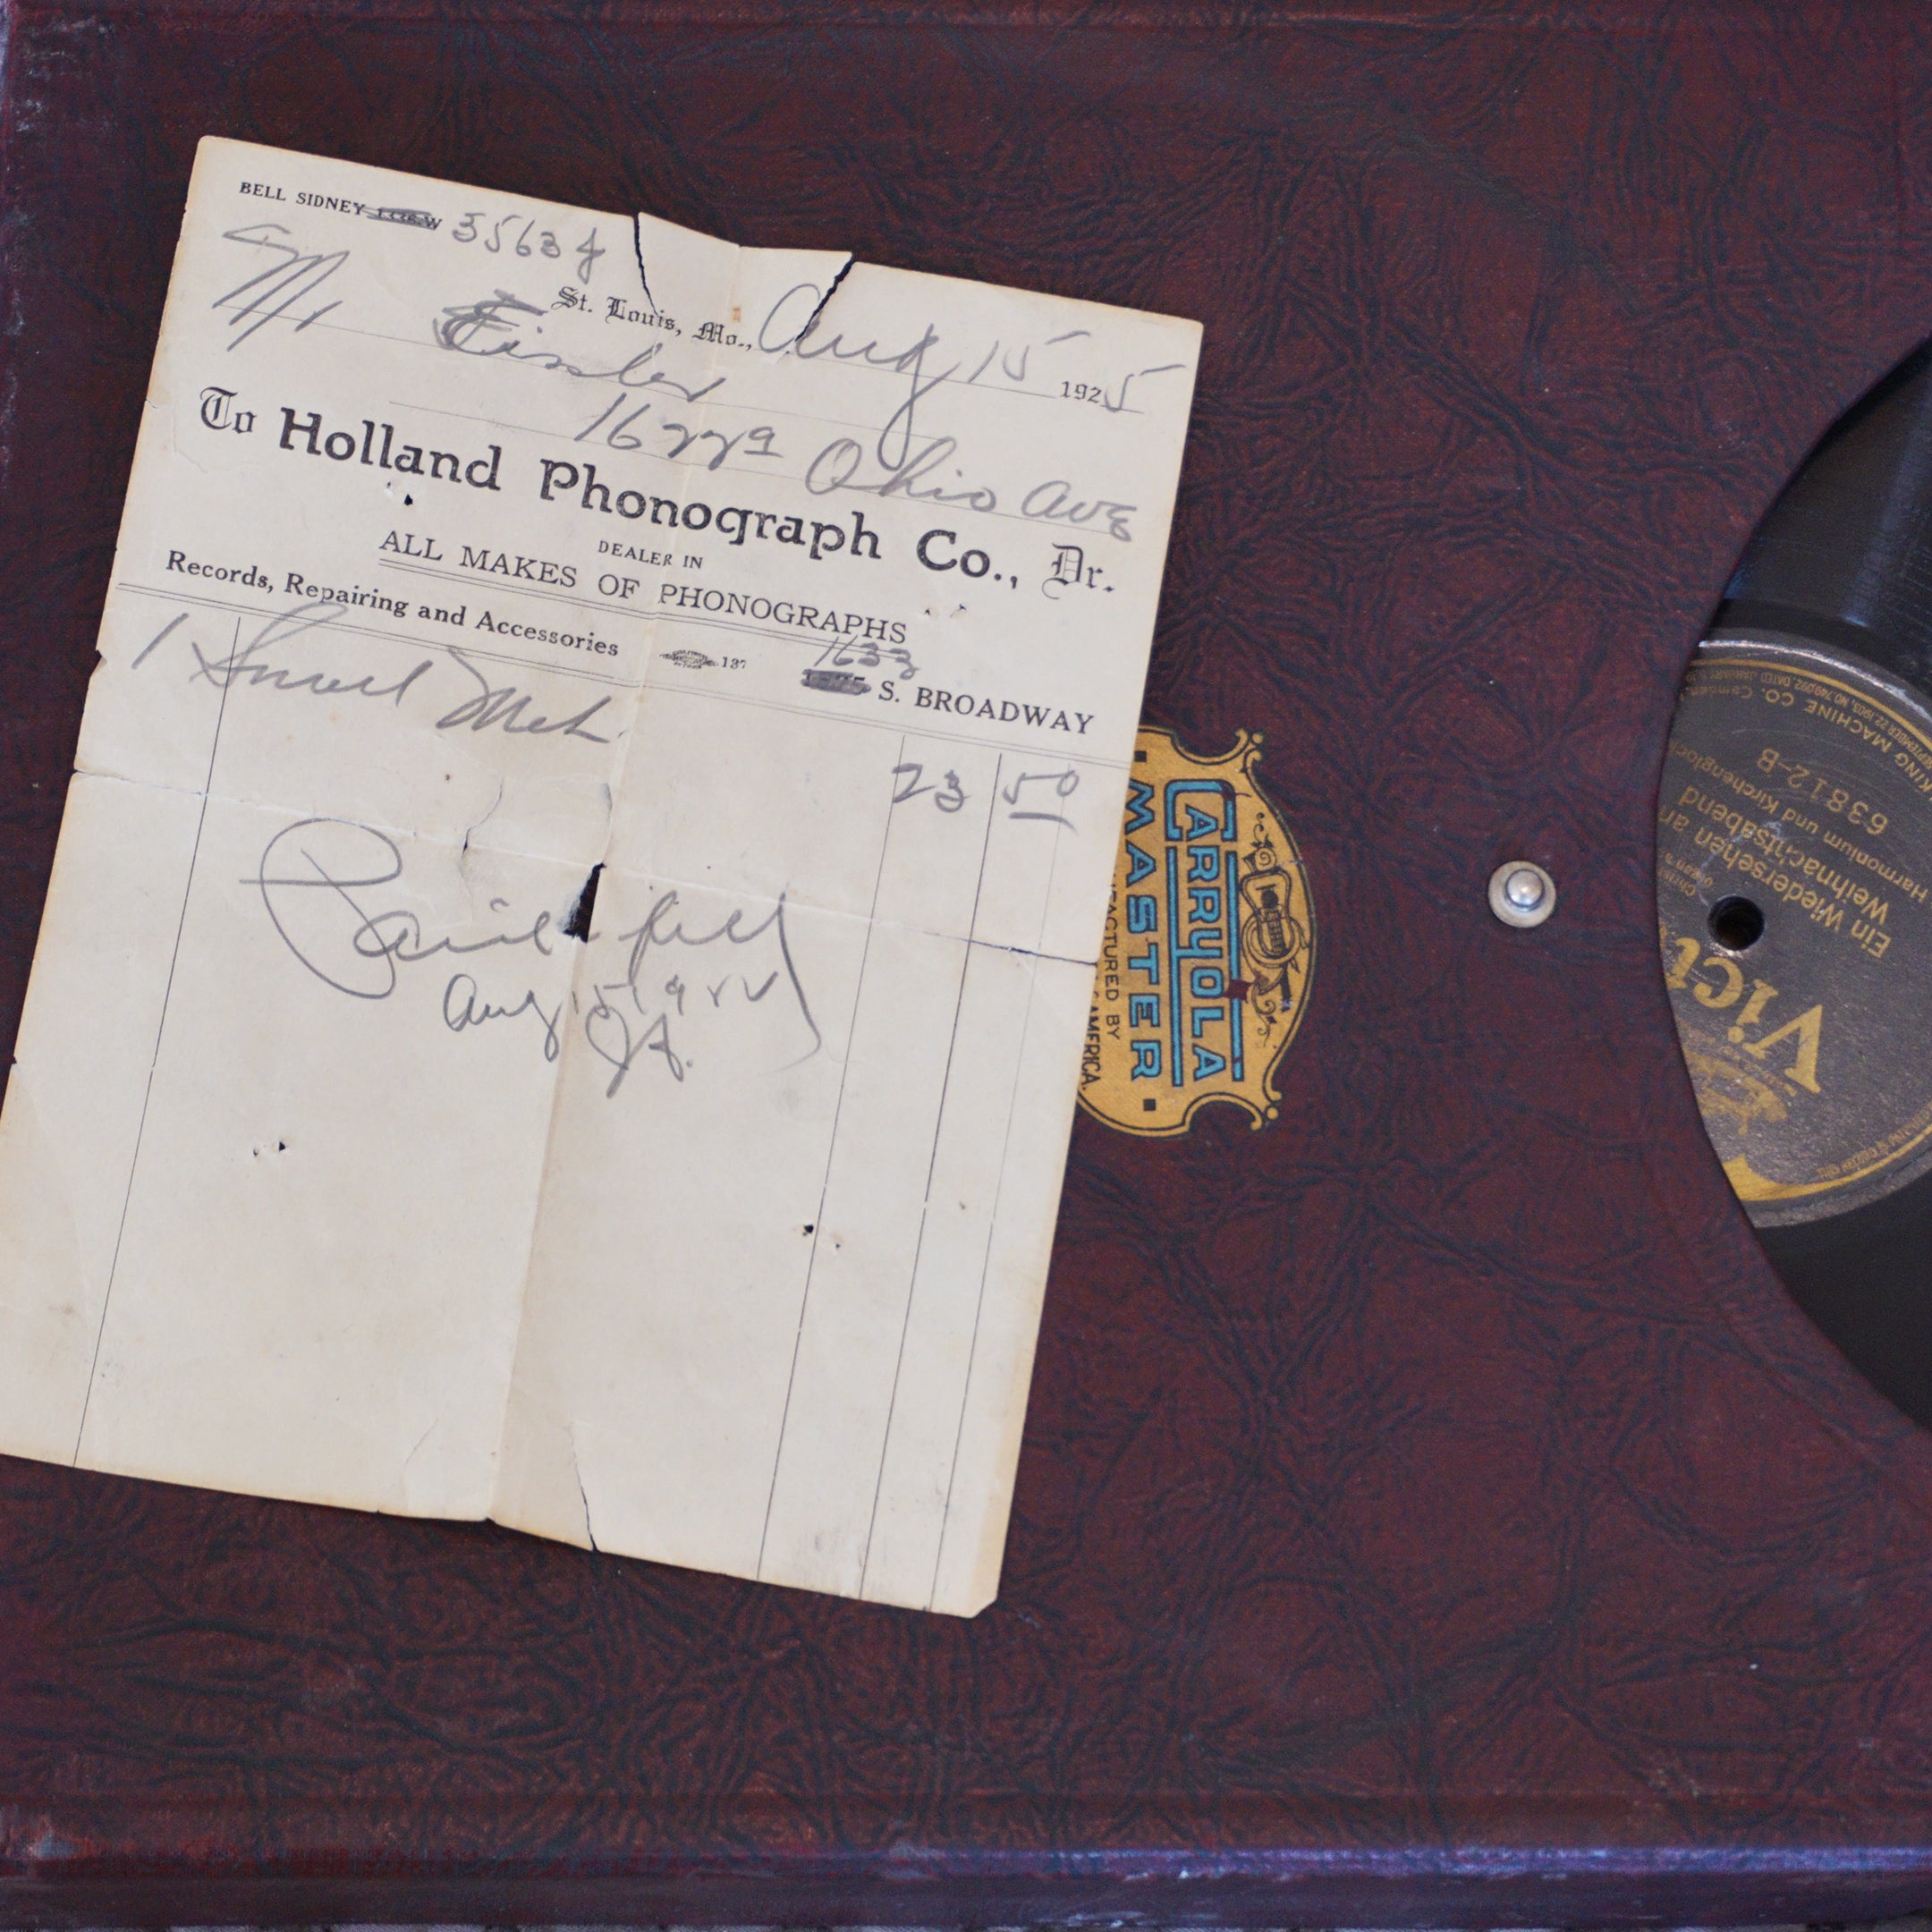 BELL SIDNEY 3563 J
St. Louis, Mo., Aug 15 1925
Mr
1622a Ohio Ave
To Holland Phonograph Co., Dr.
DEALER IN
ALL MAKES OF PHONOGRAPHS
Records, Repairing and Accessories 1633 S. BROADWAY
1 Small Mch. 23 50
Paid in full
Aug 15 1925
CARRYOLA
MASTER
MANUFACTURED BY
AMERICA.
Victor
Ein Wiedersehen am
Weihnachtsabend
Harmonium und Kirchenglocken
63812-B
KING MACHINE CO. Camden